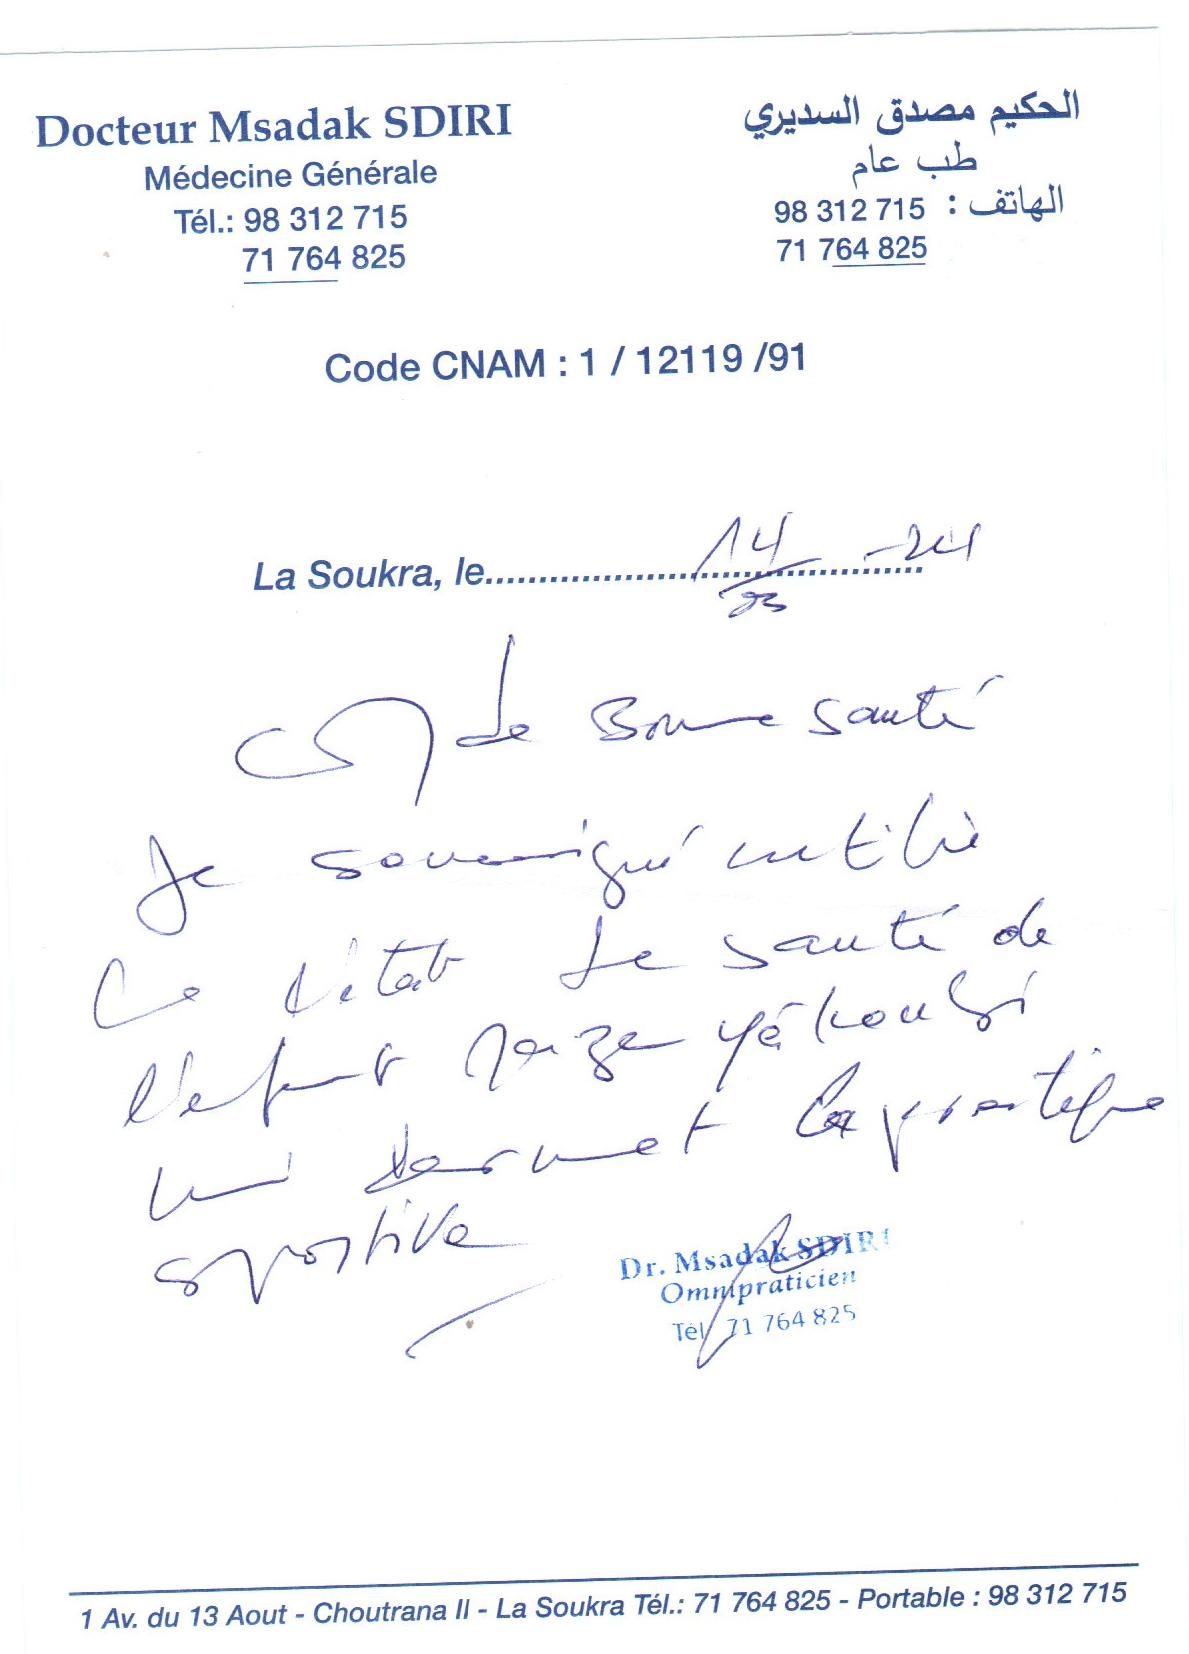 Docteur Msadak SDIRI
Médecine Générale
Tél.: 98 312 715
71 764 825
الحكيم مصدق السديري
طب عام
الهاتف : 98 312 715
71 764 825
Code CNAM : 1 / 12119 /91
La Soukra, le 14/03 -24
de Bonne santé
Je soussigné certifie
que l'état de santé de
l'enfant Yakoubi
lui permet la pratique
sportive
Dr. Msadak SDIRI
Omnipraticien
Tél 71 764 825
1 Av. du 13 Aout - Choutrana II - La Soukra Tél.: 71 764 825 - Portable : 98 312 715